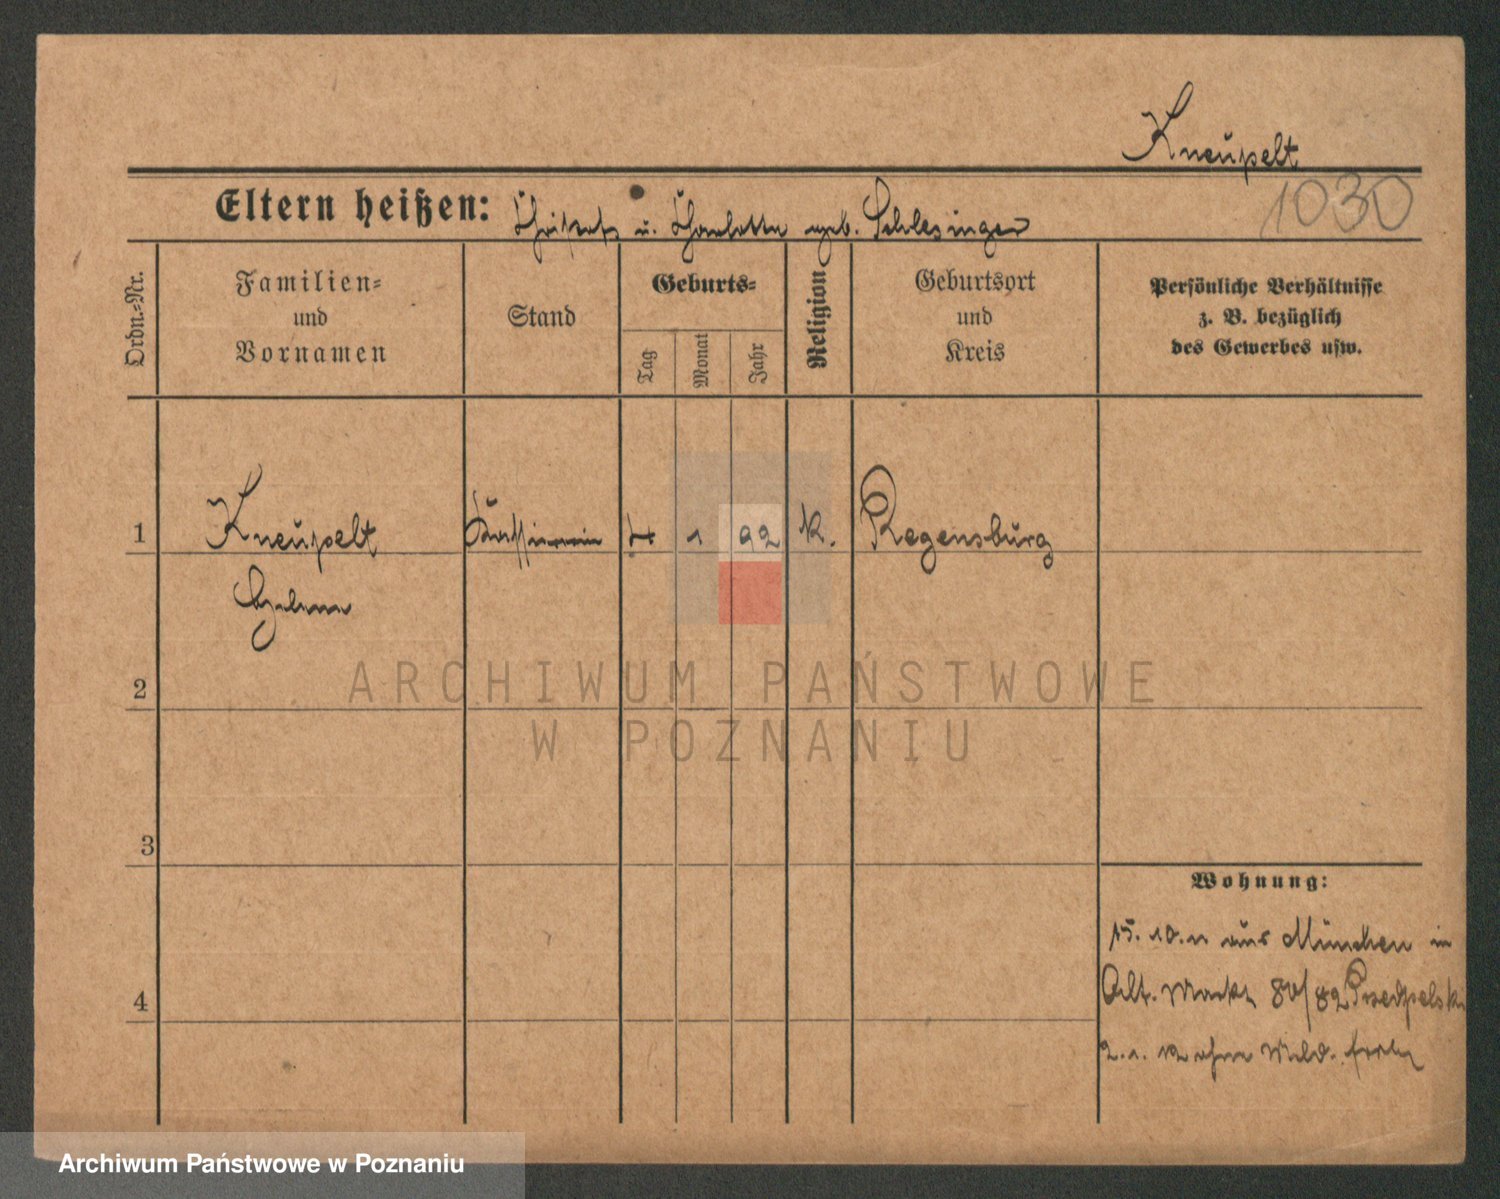 Kneupelt
1030
Eltern heißen: u. Charlotte geb. Schlesinger
Ordn.-Nr.
Familien- und Vornamen
Stand
Geburts-
Tag
Monat
Jahr
Religion
Geburtsort und Kreis
Persönliche Verhältnisse z. B. bezüglich des Gewerbes usw.
1
Kneupelt
4
1
92
K.
Regensburg
ARCHIWUM PAŃSTWOWE
W POZNANIU
2
3
4
Wohnung:
15. 10. 11 aus München in
Alt. Markt 80/82
2. 1. 12 ohne Meld. fort
Archiwum Państwowe w Poznaniu